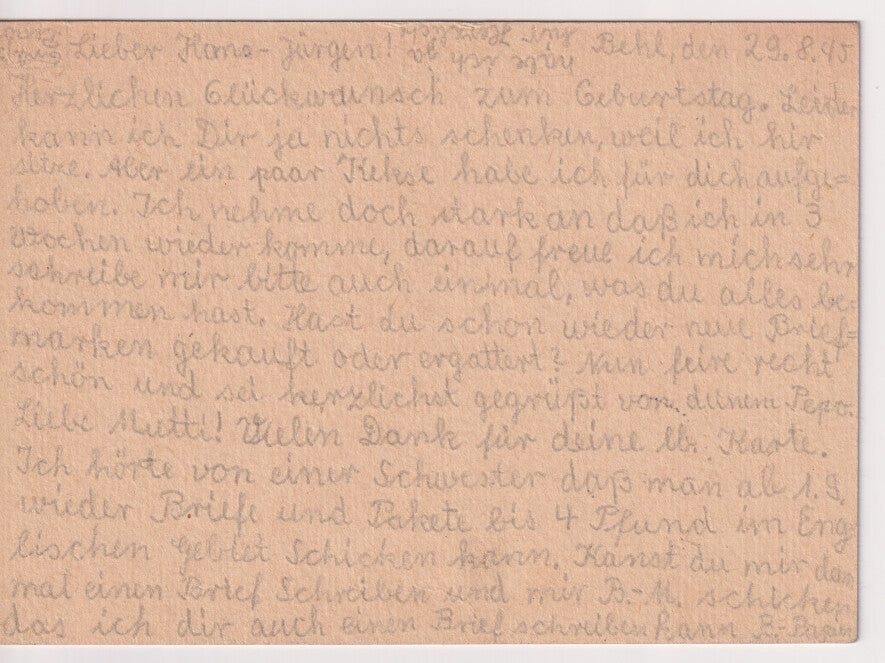 Lieber Hans-Jürgen! Behl, den 29.8.45
Herzlichen Glückwunsch zum Geburtstag. Leider
kann ich Dir ja nichts schenken, weil ich hir
sitze. Aber ein paar Kekse habe ich für dich aufge=
hoben. Ich nehme doch stark an daß ich in 3
Wochen wieder komme, darauf freue ich mich sehr
schreibe mir bitte auch einmal, was du alles be=
kommen hast. Hast du schon wieder neue Brief=
marken gekauft oder ergattert? Nun feire recht
schön und sei herzlichst gegrüßt von deinem Pepo.
Liebe Mutti! Vielen Dank für deine lb. Karte.
Ich hörte von einer Schwester daß man ab 1.9.
wieder Briefe und Pakete bis 4 Pfund im Eng
lischen Gebiet Schicken kann. Kanst du mir dan
mal einen Brief Schreiben und mir B.-M. schicken
das ich dir auch einen Brief schreiben kann B.-Papier